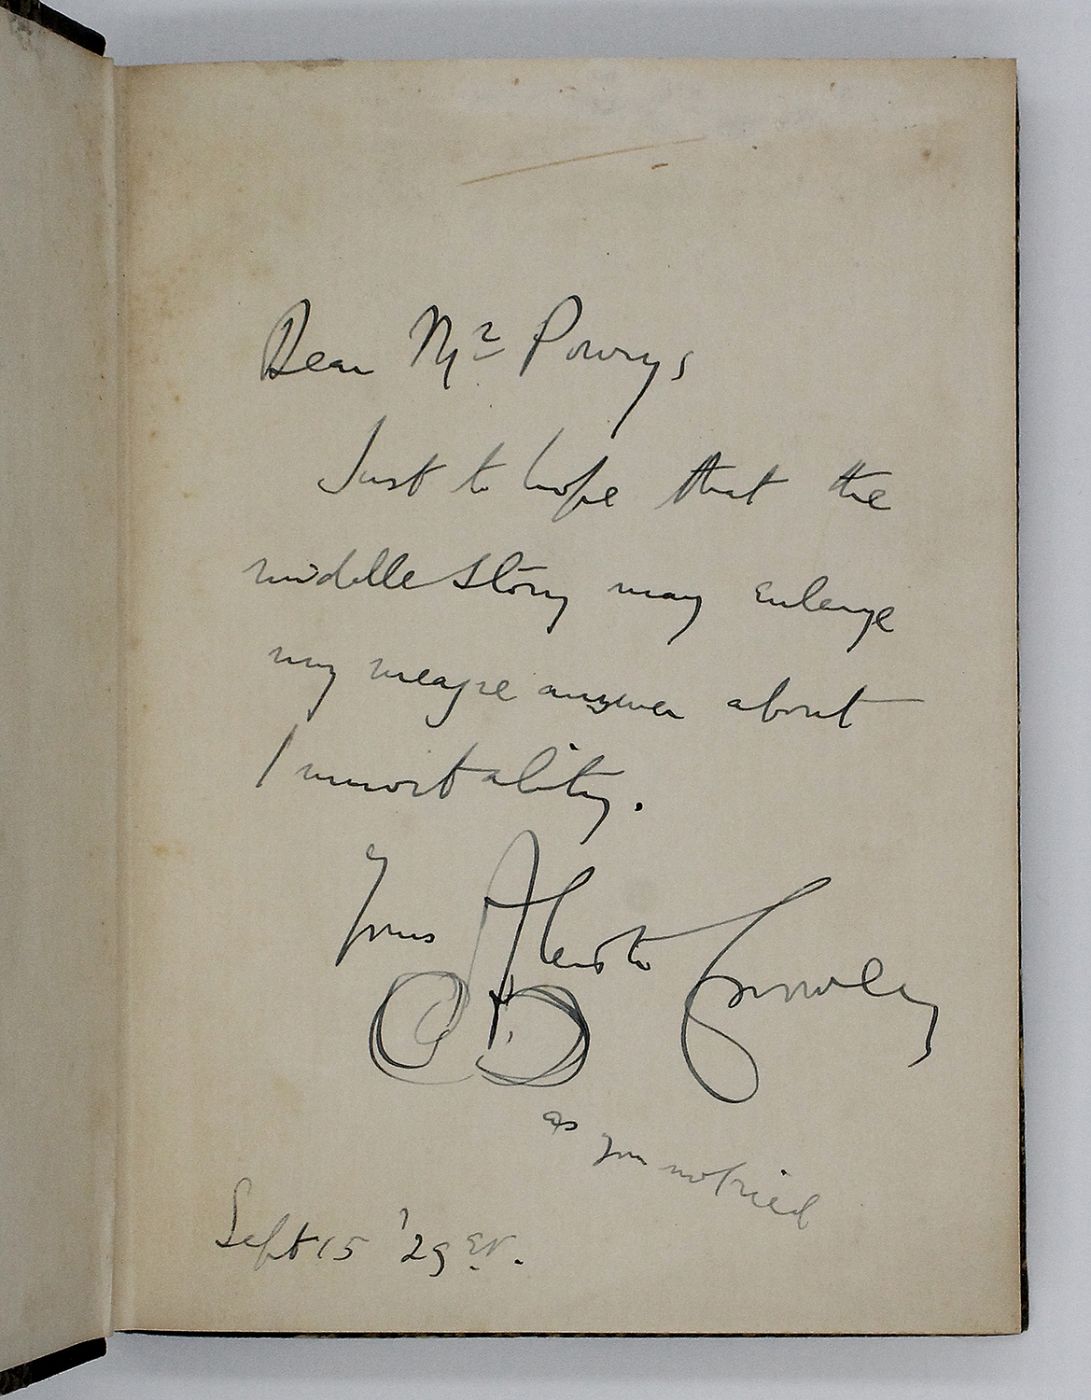 Dear Mr Powys
Just to hope that the
middle story may enlarge
my meagre answer about
Immortality.
Yours Aleister Crowley
as you noticed
Sept 15 '29 e.v.